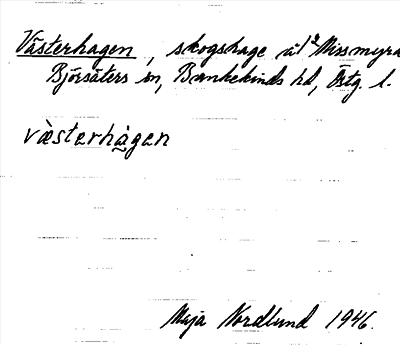 Västerhagen, skogshage å Missmyra
Björsäters sn, Bankekinds hd, Östg. l.
västerhagen
Maja Nordlund 1946.